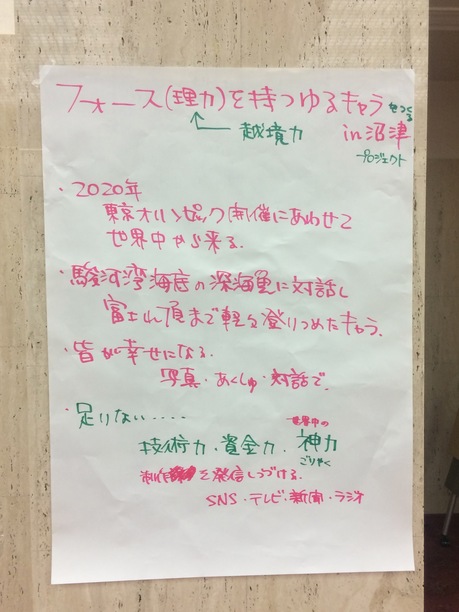 フォース(理力)を持つゆるキャラをつくる
越境力
in沼津
プロジェクト
・2020年
東京オリンピック開催にあわせて
世界中から来る.
・駿河湾海底の深海魚に対話し
富士山頂まで軽々登りつめたキャラ.
・皆が幸せになる.
写真・あくしゅ・対話で.
・足りない‥‥
世界中の
技術力・資金力・神力
ごりやく
制作を発信しつづける.
SNS・テレビ・新聞・ラジオ